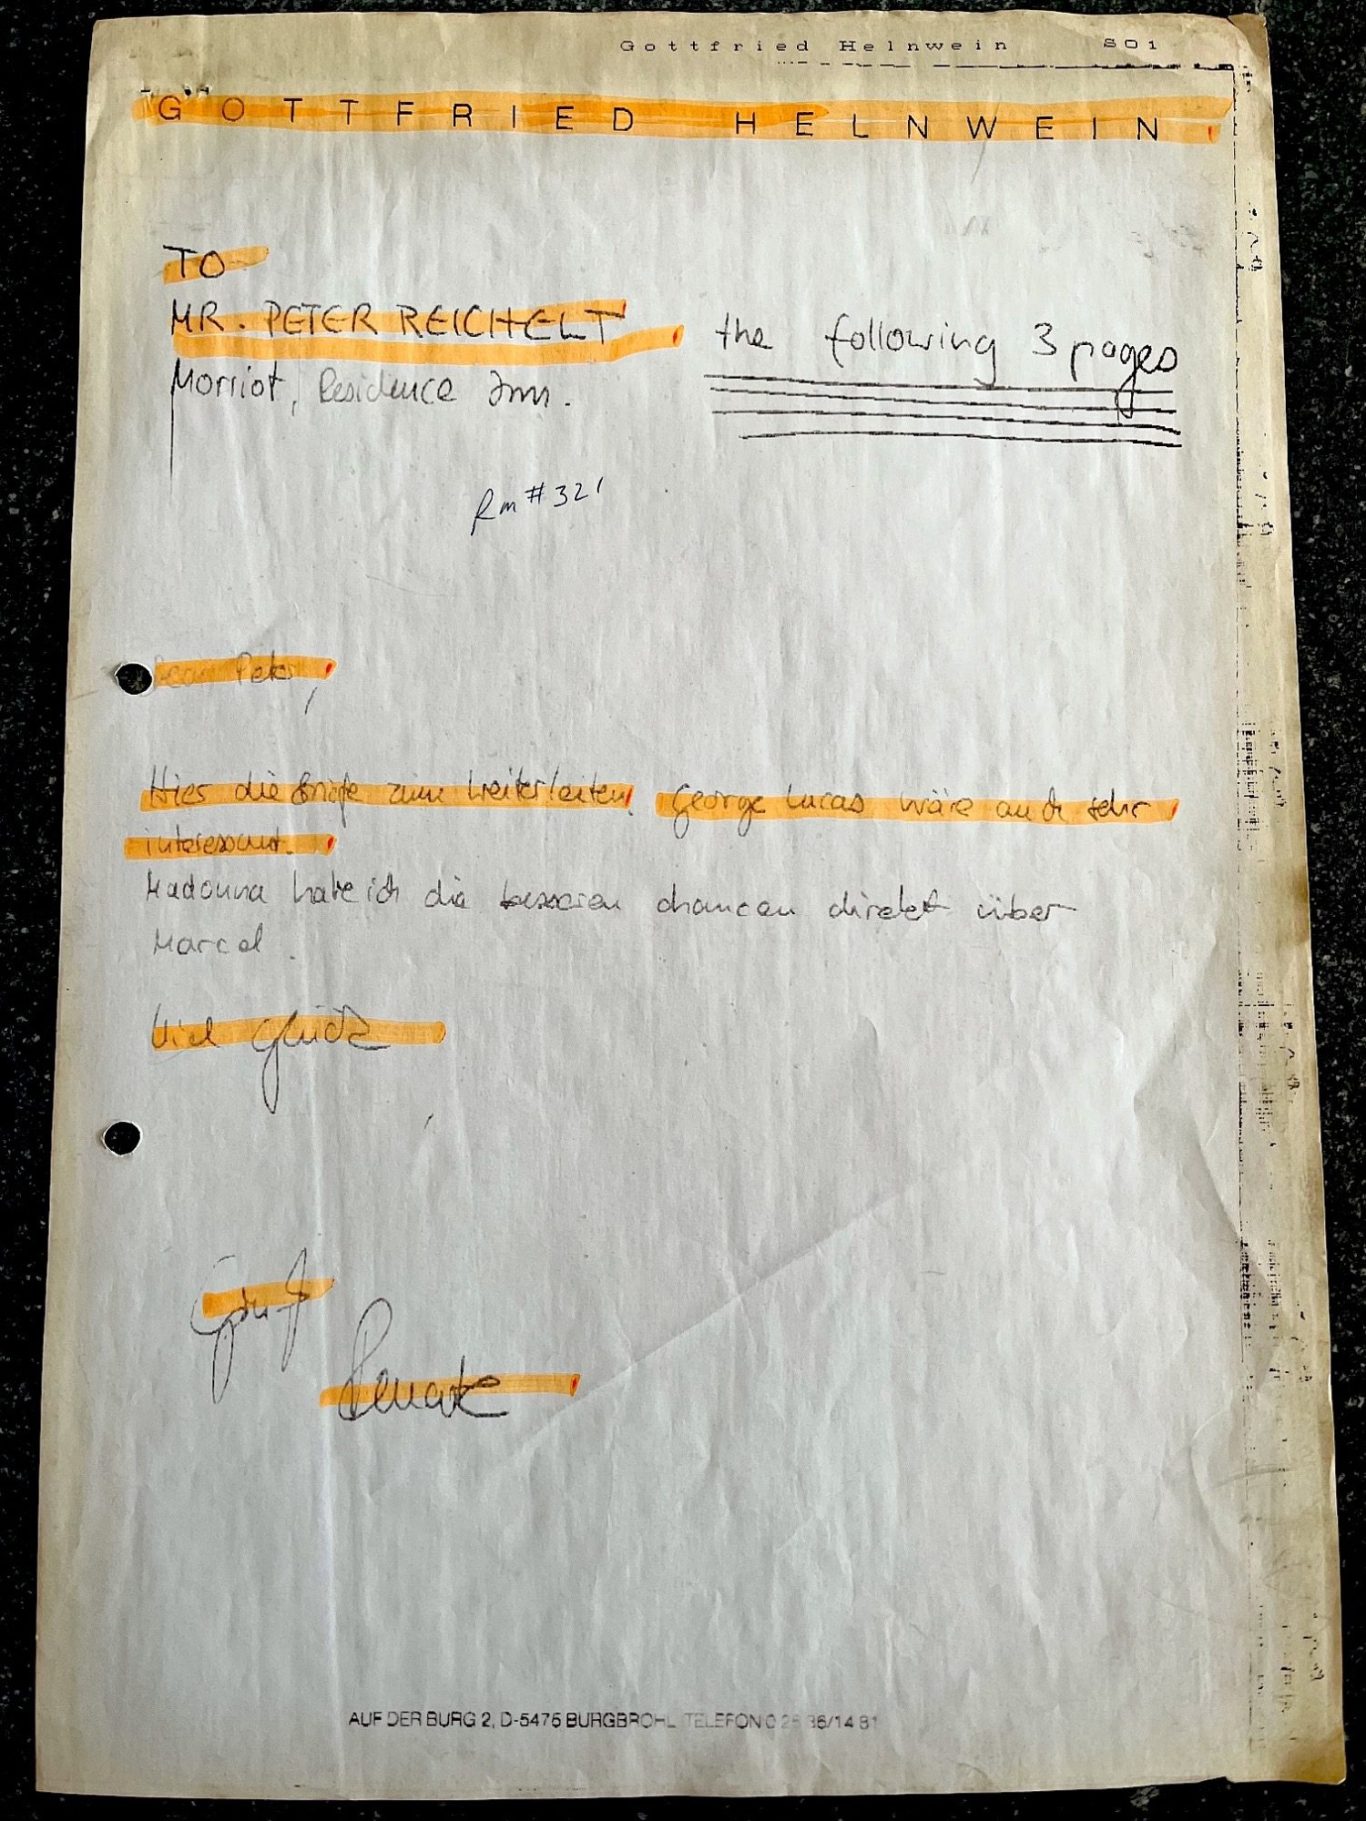 Gottfried Helnwein S01
GOTTFRIED HELNWEIN
TO
MR. PETER REICHELT
the following 3 pages
Morriot, Residence Inn.
Rm #321
Dear Peter,
Hier die Briefe zum Weiterleiten, George Lucas wäre auch sehr
interessant.
Madonna habe ich die besseren chancen direkt über
Marcel.
Viel Glück
Renate
AUF DER BURG 2, D-5475 BURGBROHL TELEFON 0 26 36/14 81